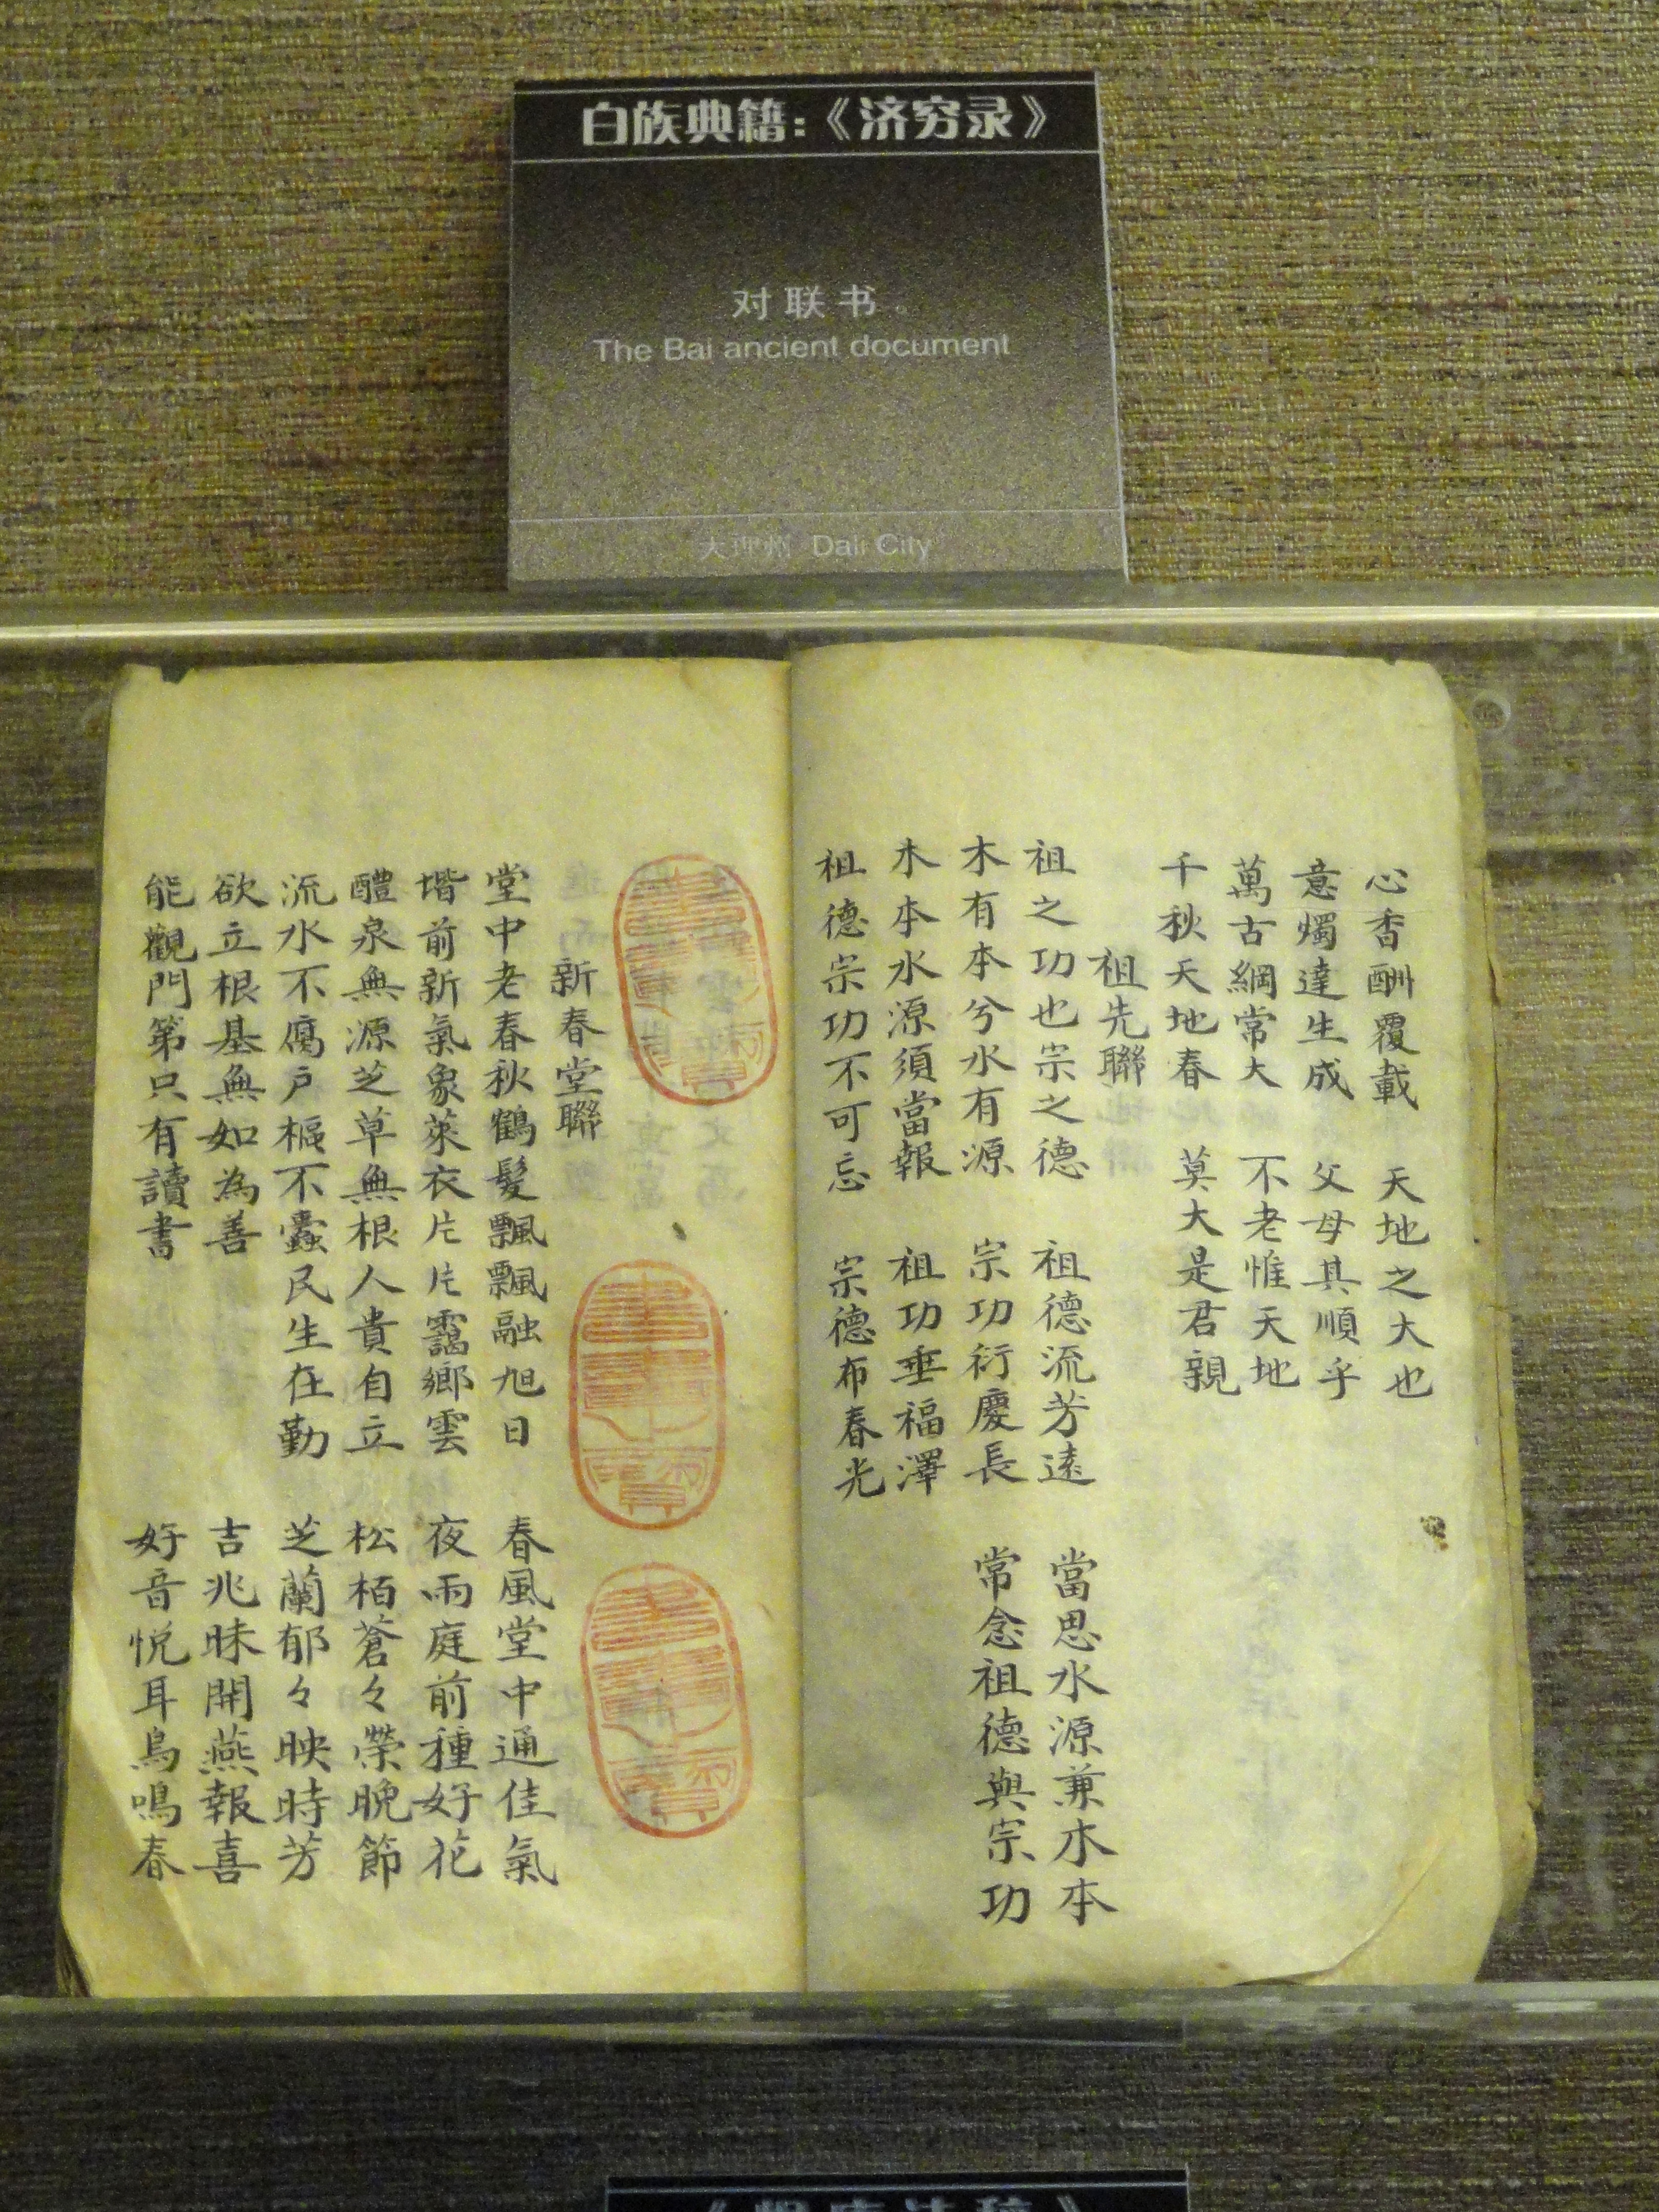 白族典籍:《济穷录》
对联书。
The Bai ancient document
大理州 Dali City
心香酬覆載 天地之大也
意燭達生成 父母其順乎
萬古綱常大 不老惟天地
千秋天地春 莫大是君親
祖先聯
祖之功也宗之德 祖德流芳遠 當思水源兼木本
木有本兮水有源 宗功衍慶長 常念祖德與宗功
木本水源須當報 祖功垂福澤
祖德宗功不可忘 宗德布春光
新春堂聯
堂中老春秋鶴髮飄飄融旭日 春風堂中通佳氣
堦前新氣象萊衣片片靄鄉雲 夜雨庭前種好花
醴泉無源芝草無根人貴自立 松栢蒼々榮晚節
流水不腐戶樞不蠹民生在勤 芝蘭郁々映時芳
欲立根基無如為善 吉兆昧開燕報喜
能觀門第只有讀書 好音悦耳鳥鳴春